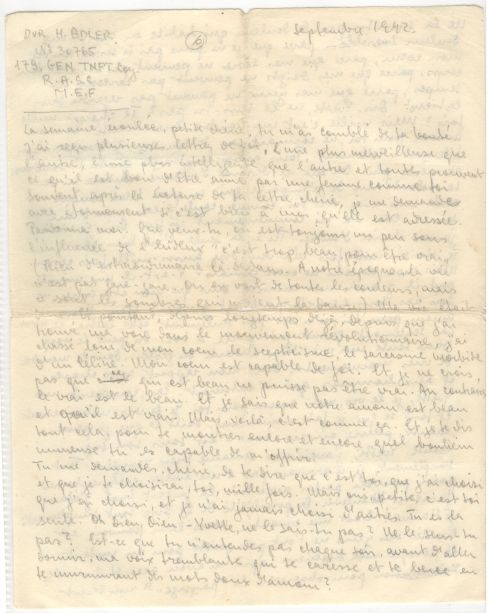 DVR H. ADLER
Nº 30765
179, GEN TNPT Coy
R.A.S.C
M.E.F
6
September 1942.
La semaine écoulée, petite chérie, tu m'as comblé de ta bonté.
J'ai reçu plusieurs lettres de toi, l'une plus merveilleuse que
l'autre, l'une plus intelligente que l'autre et toutes prouvent
ce qu'il est bon d'être aimé par une femme comme toi
Souvent, après la lecture de ta lettre, chérie, je me demande
avec étonnement si c'est bien à moi qu'elle est adressée.
Pardonne moi. Que veux-tu, on est toujours un peu sous
l'influence de l'hideux "c'est trop beau pour être vrai"
(Rien d'extraordinaire là dedans. A notre époque la vie
n'est pas gaie. On en voit de toutes les couleurs, mais
ce sont les sombres qui
pourtant, depuis longtemps déjà, depuis que j'ai
trouvé ma voie dans le mouvement révolutionnaire, j'ai
chassé loin de mon coeur le scepticisme, le sarcasme morbide
d'un Céline. Mon coeur est capable de foi. Et je ne crois
pas que ce qui est beau ne puisse pas être vrai. Au contraire
le vrai est le beau. Et je sais que notre amour est beau
et qu'il est vrai. Mais, voilà, c'est comme ça. Et je te dis
tout cela, pour te montrer encore et encore quel bonheur
immense tu es capable de m'offrir.
Tu me demandes, chérie, de te dire que c'est toi, que j'ai choisi
et que je te choisirai, toi, mille fois. Mais oui, petite, c'est toi
que j'ai choisi, et je n'ai jamais choisi d'autres. Tu es la
seule. Oh bien, bien, - Yvette, ne le sais-tu pas? Ne le sens-tu
pas? Est-ce que tu n'entends pas chaque soir, avant d'aller
dormir, ma voix tremblante qui te caresse et te berce en
te murmurant des mots doux d'amour?